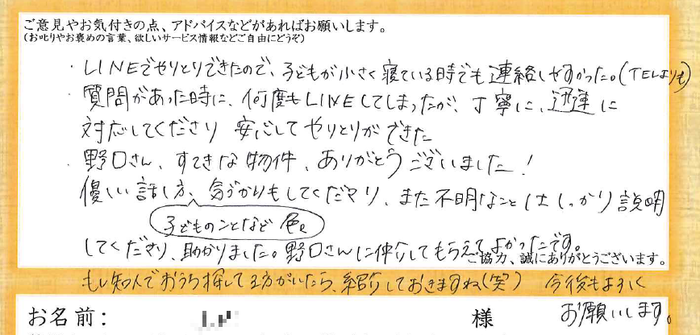 ご意見やお気付きの点、アドバイスなどがあればお願いします。
(お叱りやお褒めの言葉、欲しいサービス情報などご自由にどうぞ)
・LINEでやりとりできたので、子どもが小さく寝ている時でも連絡しやすかった。(TELよりも)
・質問があった時に、何度もLINEしてしまったが、丁寧に、迅速に
対応してくださり 安心してやりとりができた
・野口さん、すてきな物件、ありがとうございました!
優しい話し方、気づかりもしてくださり、また不明なことはしっかり説明
子どものことなど 色々
してくださり、助かりました。野口さんに仲介してもらえてよかったです。
ご協力、誠にありがとうございます。
もし知人でおうち探してる方がいたら、紹介しておきますね(笑) 今後もよろしく
お願いします。
お名前: 様